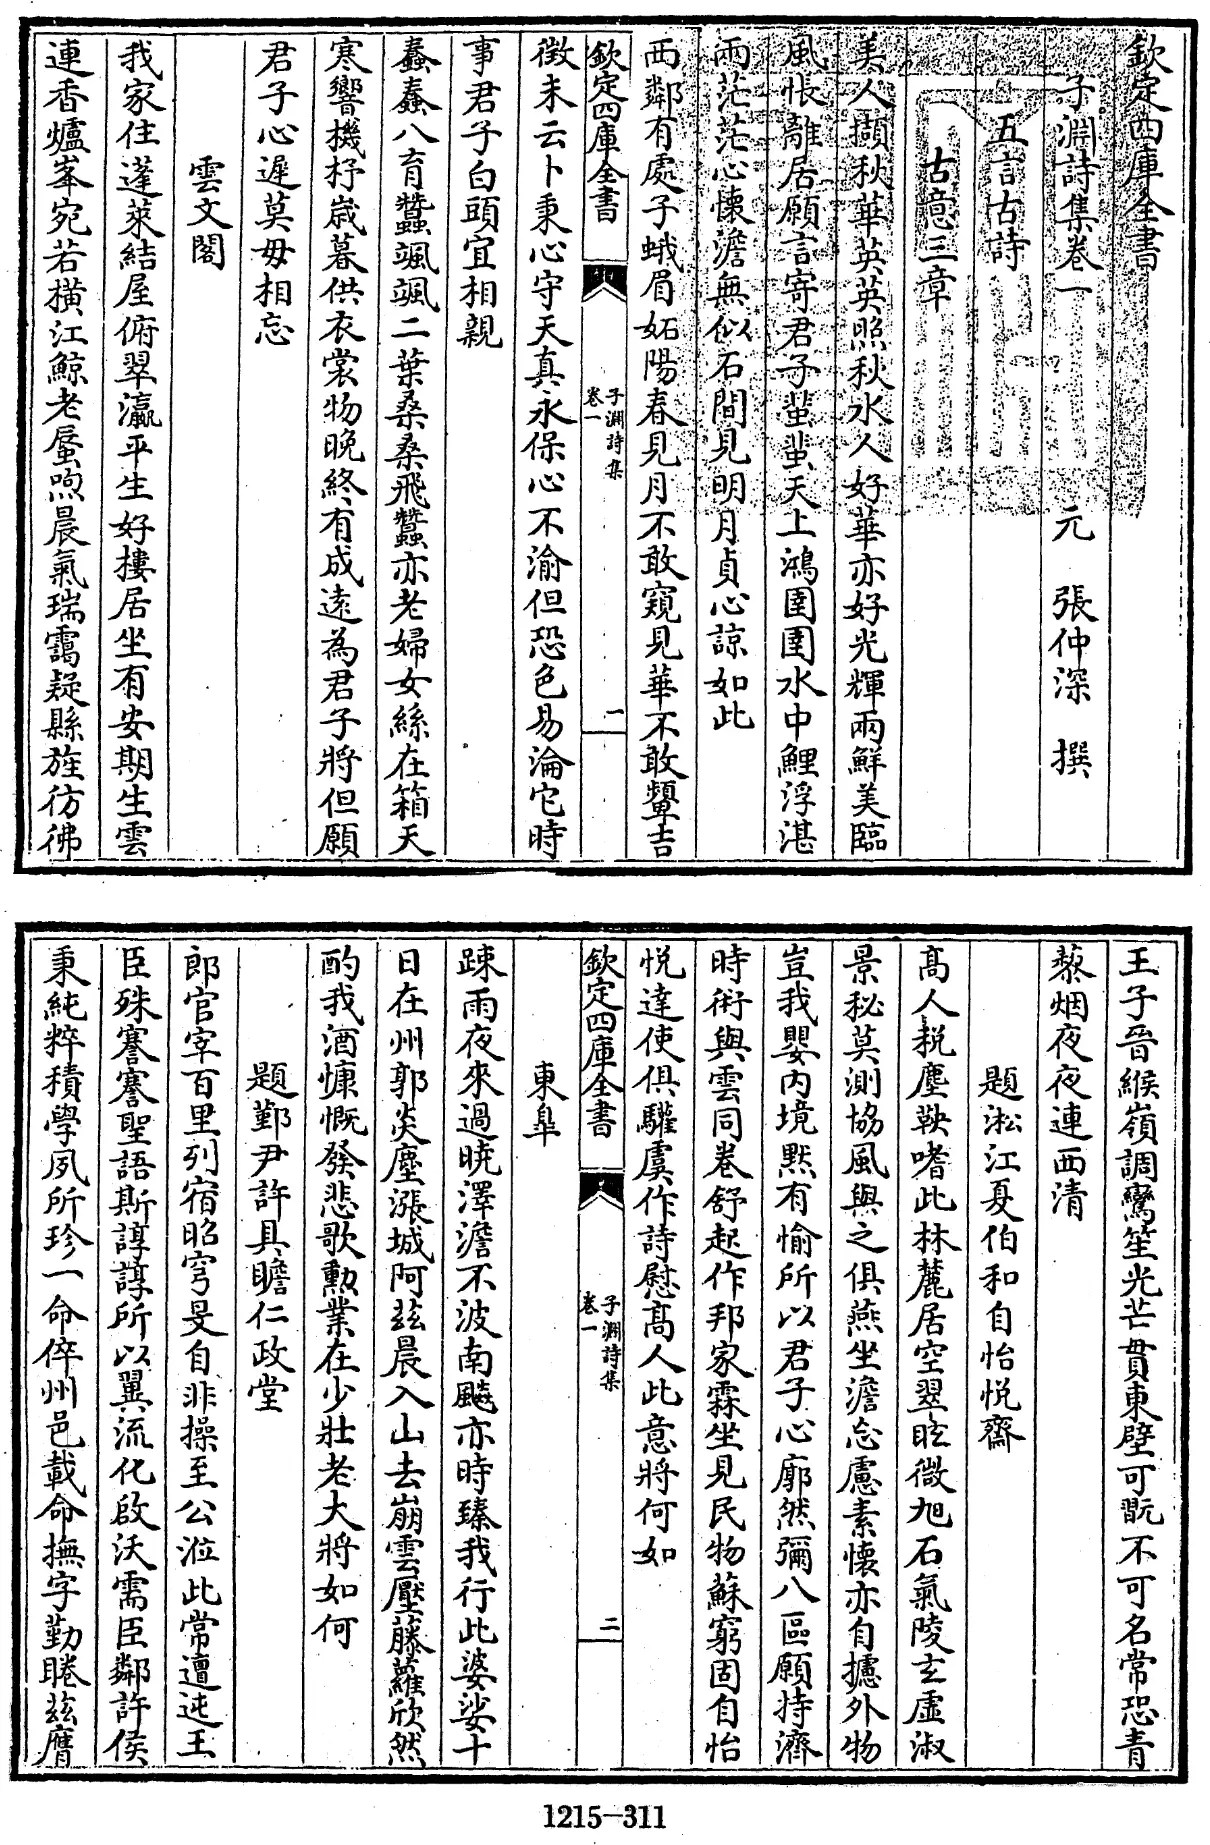 欽定四庫全書
子淵詩集卷一
元 張仲深 撰
五言古詩
古意三章
美人擷秋華英英照秋水人好華亦好光輝兩鮮美臨
風悵離居願言寄君子蜚蜚天上鴻圉圉水中鯉浮湛
兩茫茫心懷澹無似石間見明月貞心諒如此
西鄰有處子蛾眉妬陽春見月不敢窺見華不敢顰吉
欽定四庫全書
子淵詩集
卷一
一
徵未云卜秉心守天真永保心不渝但恐色易淪它時
事君子白頭宜相親
蠢蠢八育蠶颯颯二葉桑桑飛蠶亦老婦女絲在箱天
寒響機杼歲暮供衣裳物晚終有成遠為君子將但願
君子心遲莫毋相忘
雲文閣
我家住蓬萊結屋俯翠瀛平生好樓居坐有安期生雲
連香爐峯宛若橫江鯨老蜃喣晨氣瑞靄疑縣旌彷彿
王子晉緱嶺調鸞笙光芒貫東壁可翫不可名常恐青
藜烟夜夜連西清
題淞江夏伯和自怡悅齋
髙人税塵鞅嗜此林麓居空翠眩微旭石氣陵玄虛淑
景秘莫測協風與之俱燕坐澹忘慮素懷亦自攄外物
豈我嬰内境黙有愉所以君子心廓然彌八區願持濟
時術與雲同卷舒起作邦家霖坐見民物蘇窮固自怡
悅達使俱驩虞作詩慰髙人此意將何如
欽定四庫全書
子淵詩集
卷一
二
東臯
踈雨夜來過曉澤澹不波南飈亦時臻我行此婆娑十
日在州郭炎塵漲城阿兹晨入山去崩雲壓藤蘿欣然
酌我酒慷慨發悲歌勲業在少壯老大將如何
題鄞尹許具瞻仁政堂
郎官宰百里列宿昭穹旻自非操至公涖此常邅迍王
臣殊謇謇聖語斯諄諄所以翼流化啟沃需臣鄰許侯
秉純粹積學夙所珍一命倅州邑載命撫字勤睠兹膺
1215-311